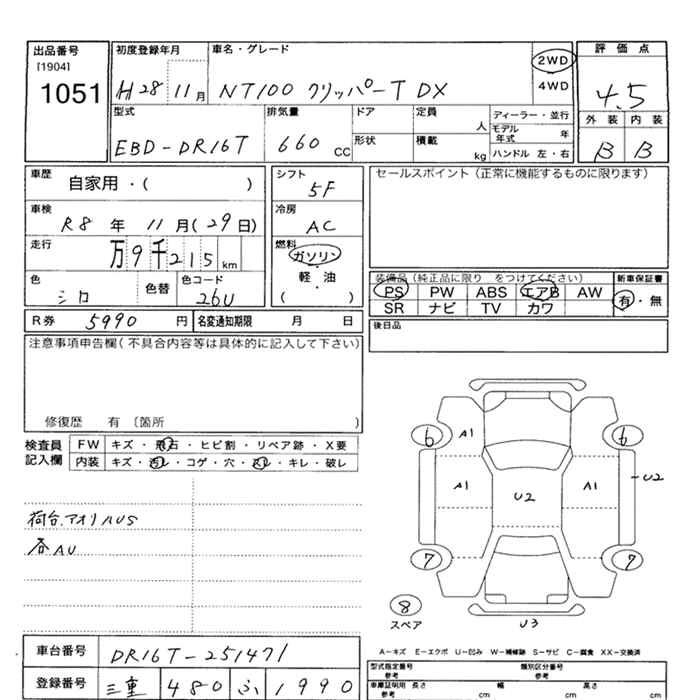 出品番号
[1904]
1051
初度登録年月
H28 11月
車名・グレード
NT100 クリッパーT DX
2WD
4WD
評価点
4.5
外装 内装
B B
型式
EBD-DR16T
排気量
660 CC
ドア
形状
定員
人
積載
kg
ディーラー・並行
モデル年式 年
ハンドル 左・右
車歴
自家用・( )
車検
R8 年 11 月(29日)
走行
万9千215 km
色
シロ
色替
色コード
26U
シフト
5F
冷房
AC
燃料
ガソリン
軽・油
( )
セールスポイント(正常に機能するものに限ります)
装備品(純正品に限り をつけてください)
PS PW ABS エアB AW
SR ナビ TV カワ
新車保証書
有・無
後日品
R券 5990 円
名変通知期限 月 日
注意事項申告欄(不具合内容等は具体的に記入して下さい)
修復歴 有 〔箇所
検査員記入欄
FW キズ・飛石・ヒビ割・リペア跡・X要
内装 キズ・汚レ・コゲ・穴・スレ・キレ・破レ
荷台.アオリ AUS
各AU
6 A1 6
A1 U2 A1 U2
7 7
8
スペア
U3
A-キズ E-エクボ U-凹み W-補修跡 S-サビ C-腐食 XX-交換済
車台番号 DR16T-251471
登録番号 三重 480 ふ 1990
型式指定番号
参考
類別区分番号
参考
車庫証明用 長さ
参考 cm
幅
cm
高さ
cm